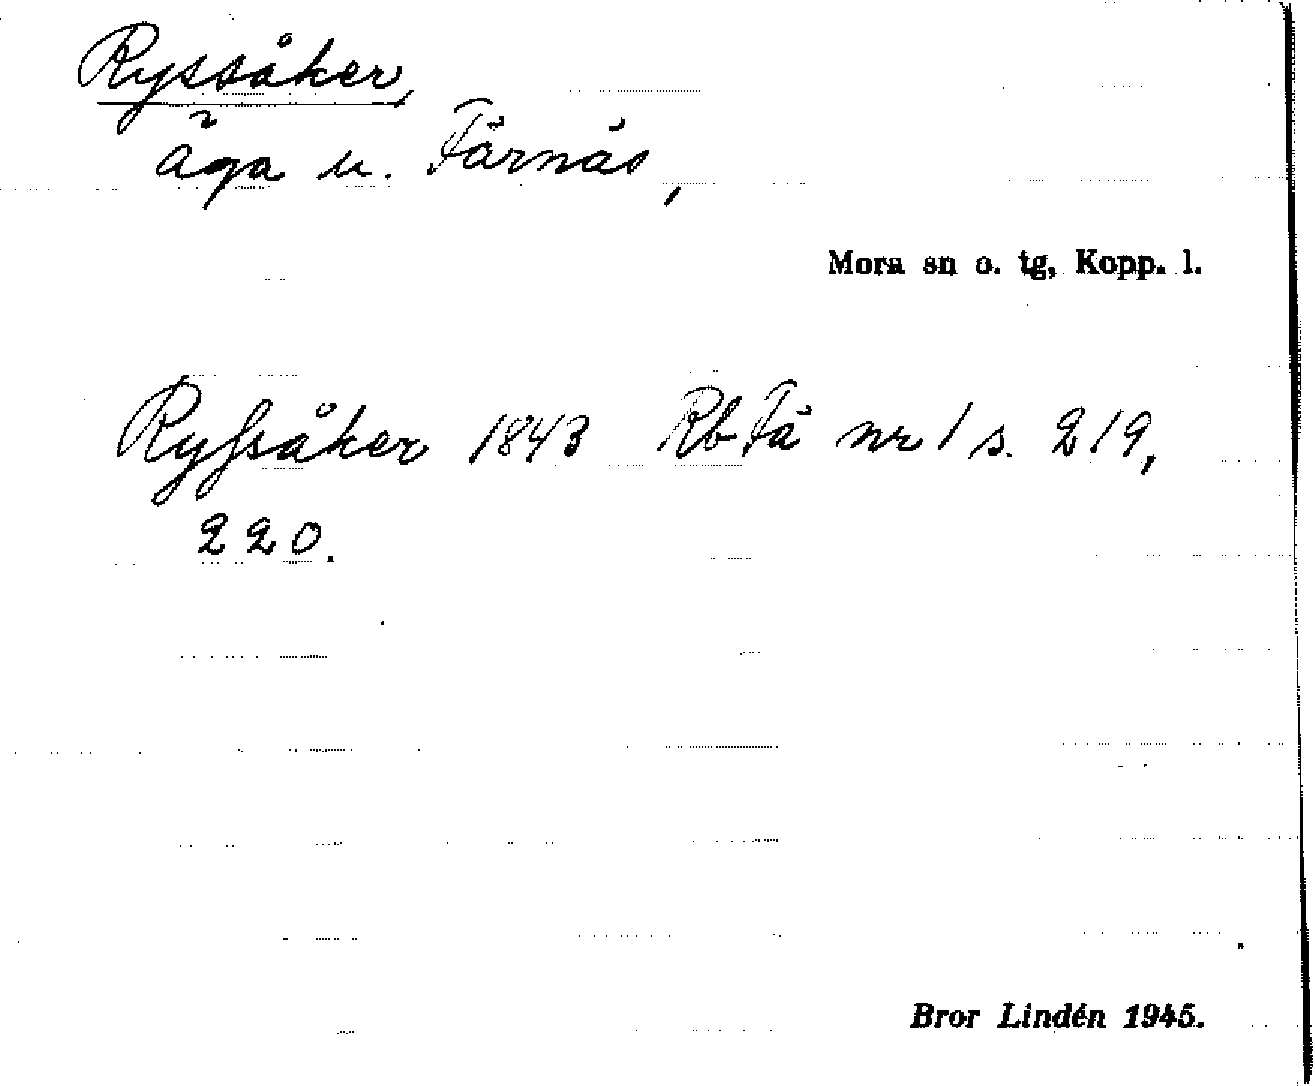 Ryssåker,
äga u. Färnäs,
Mora sn o. tg, Kopp. l.
Ryſsåker 1843 Rb Fä nr 1 s. 219,
220.
Bror Lindén 1945.